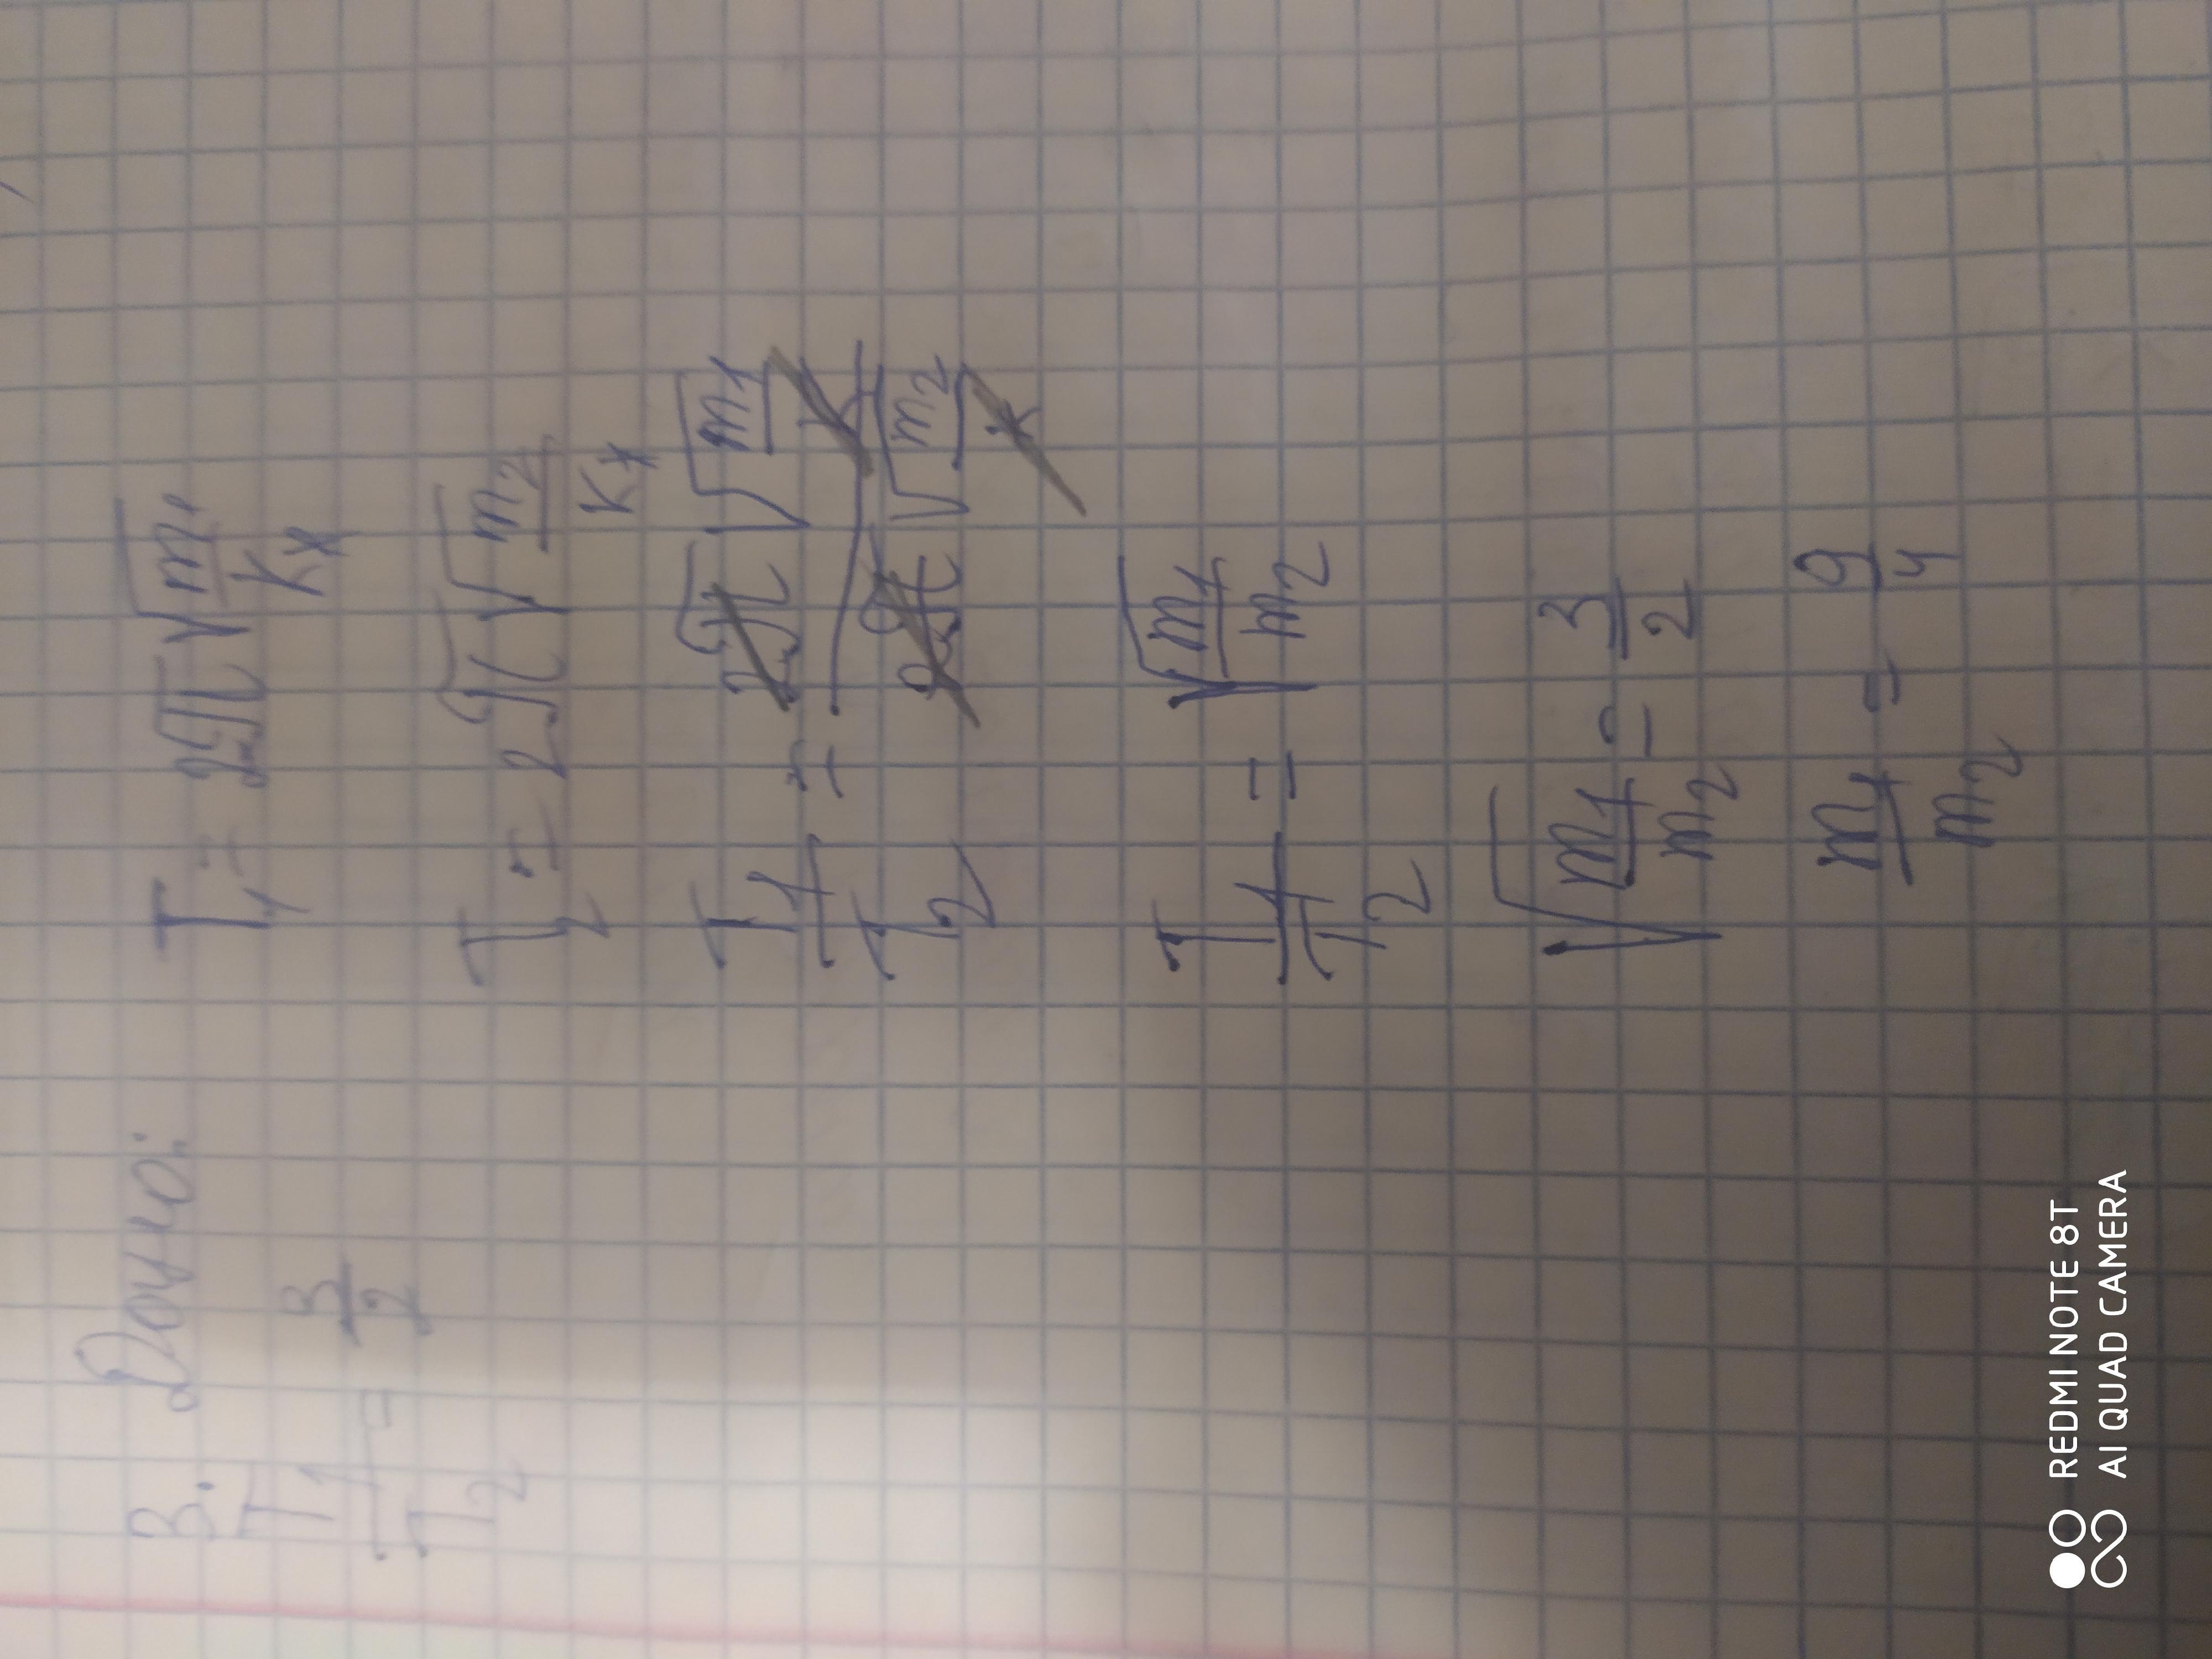 3. Дано:
T1/T2 = 3/2
T1 = 2π√(m1/Kx)
T2 = 2π√(m2/Kx)
T1/T2 = 2π√(m1/K)/2π√(m2/K)
T1/T2 = √(m1/m2)
√(m1/m2) = 3/2
m1/m2 = 9/4
REDMI NOTE 8T
AI QUAD CAMERA